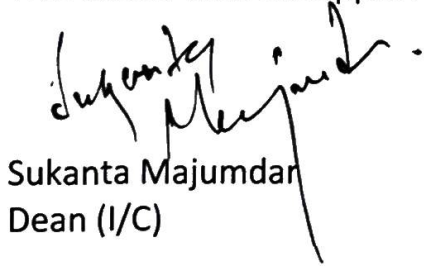 Sukanta
Majumdar.
Sukanta Majumdar
Dean (I/C)